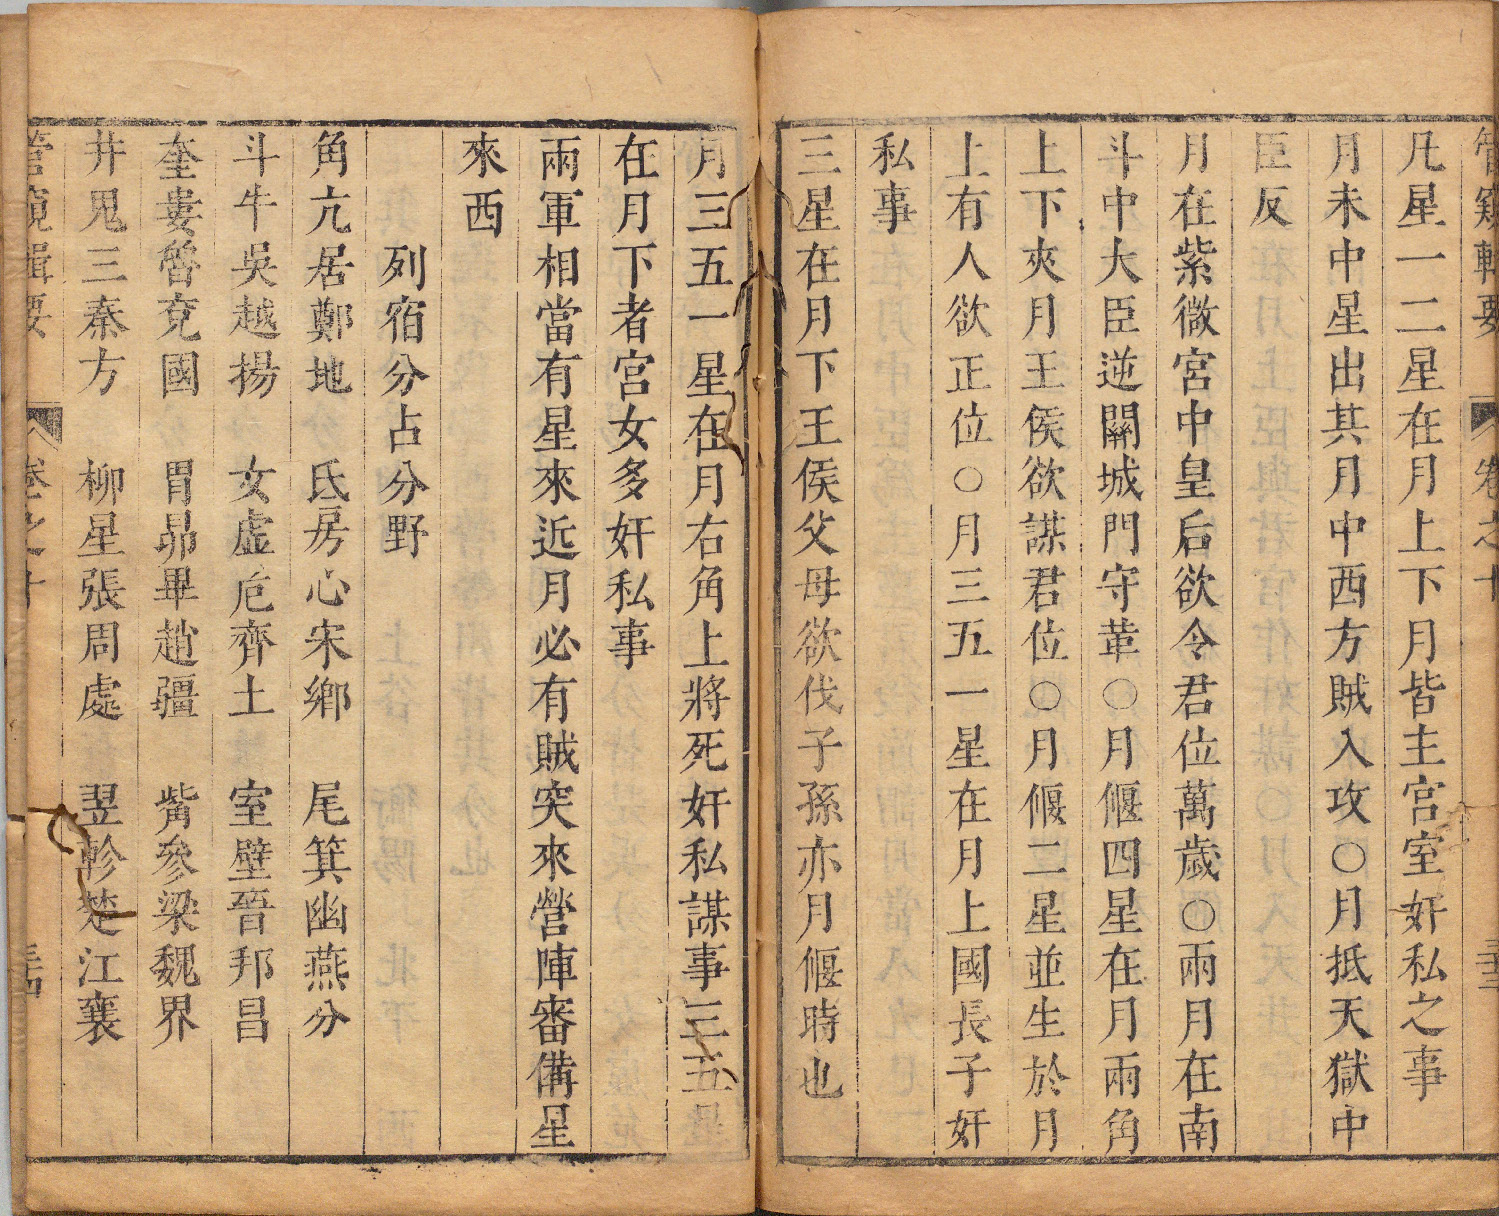 管窺輯要 卷之十 三十三
凡星一二星在月上下月皆主宮室奸私之事
月未中星出其月中西方賊入攻○月抵天獄中
臣反
月在紫微宮中皇后欲令君位萬歲○兩月在南
斗中大臣逆關城門守葷○月偃四星在月兩角
上下夾月王侯欲謀君位○月偃二星並生於月
上有人欲正位○月三五一星在月上國長子奸
私事
三星在月下王侯父母欲伐子孫亦月偃時也
月三五一星在月右角上將死奸私謀事三五星
在月下者宮女多奸私事
兩軍相當有星來近月必有賊突來營陣審備星
來西
列宿分占分野
角亢居鄭地 氐房心宋鄉 尾箕幽燕分
斗牛吳越揚 女虛危齊土 室壁晉邦昌
奎婁魯兗國 胃昴畢趙疆 觜參梁魏界
井鬼三秦方 柳星張周處 翌軫楚江襄
管窺輯要 卷之十 三十四